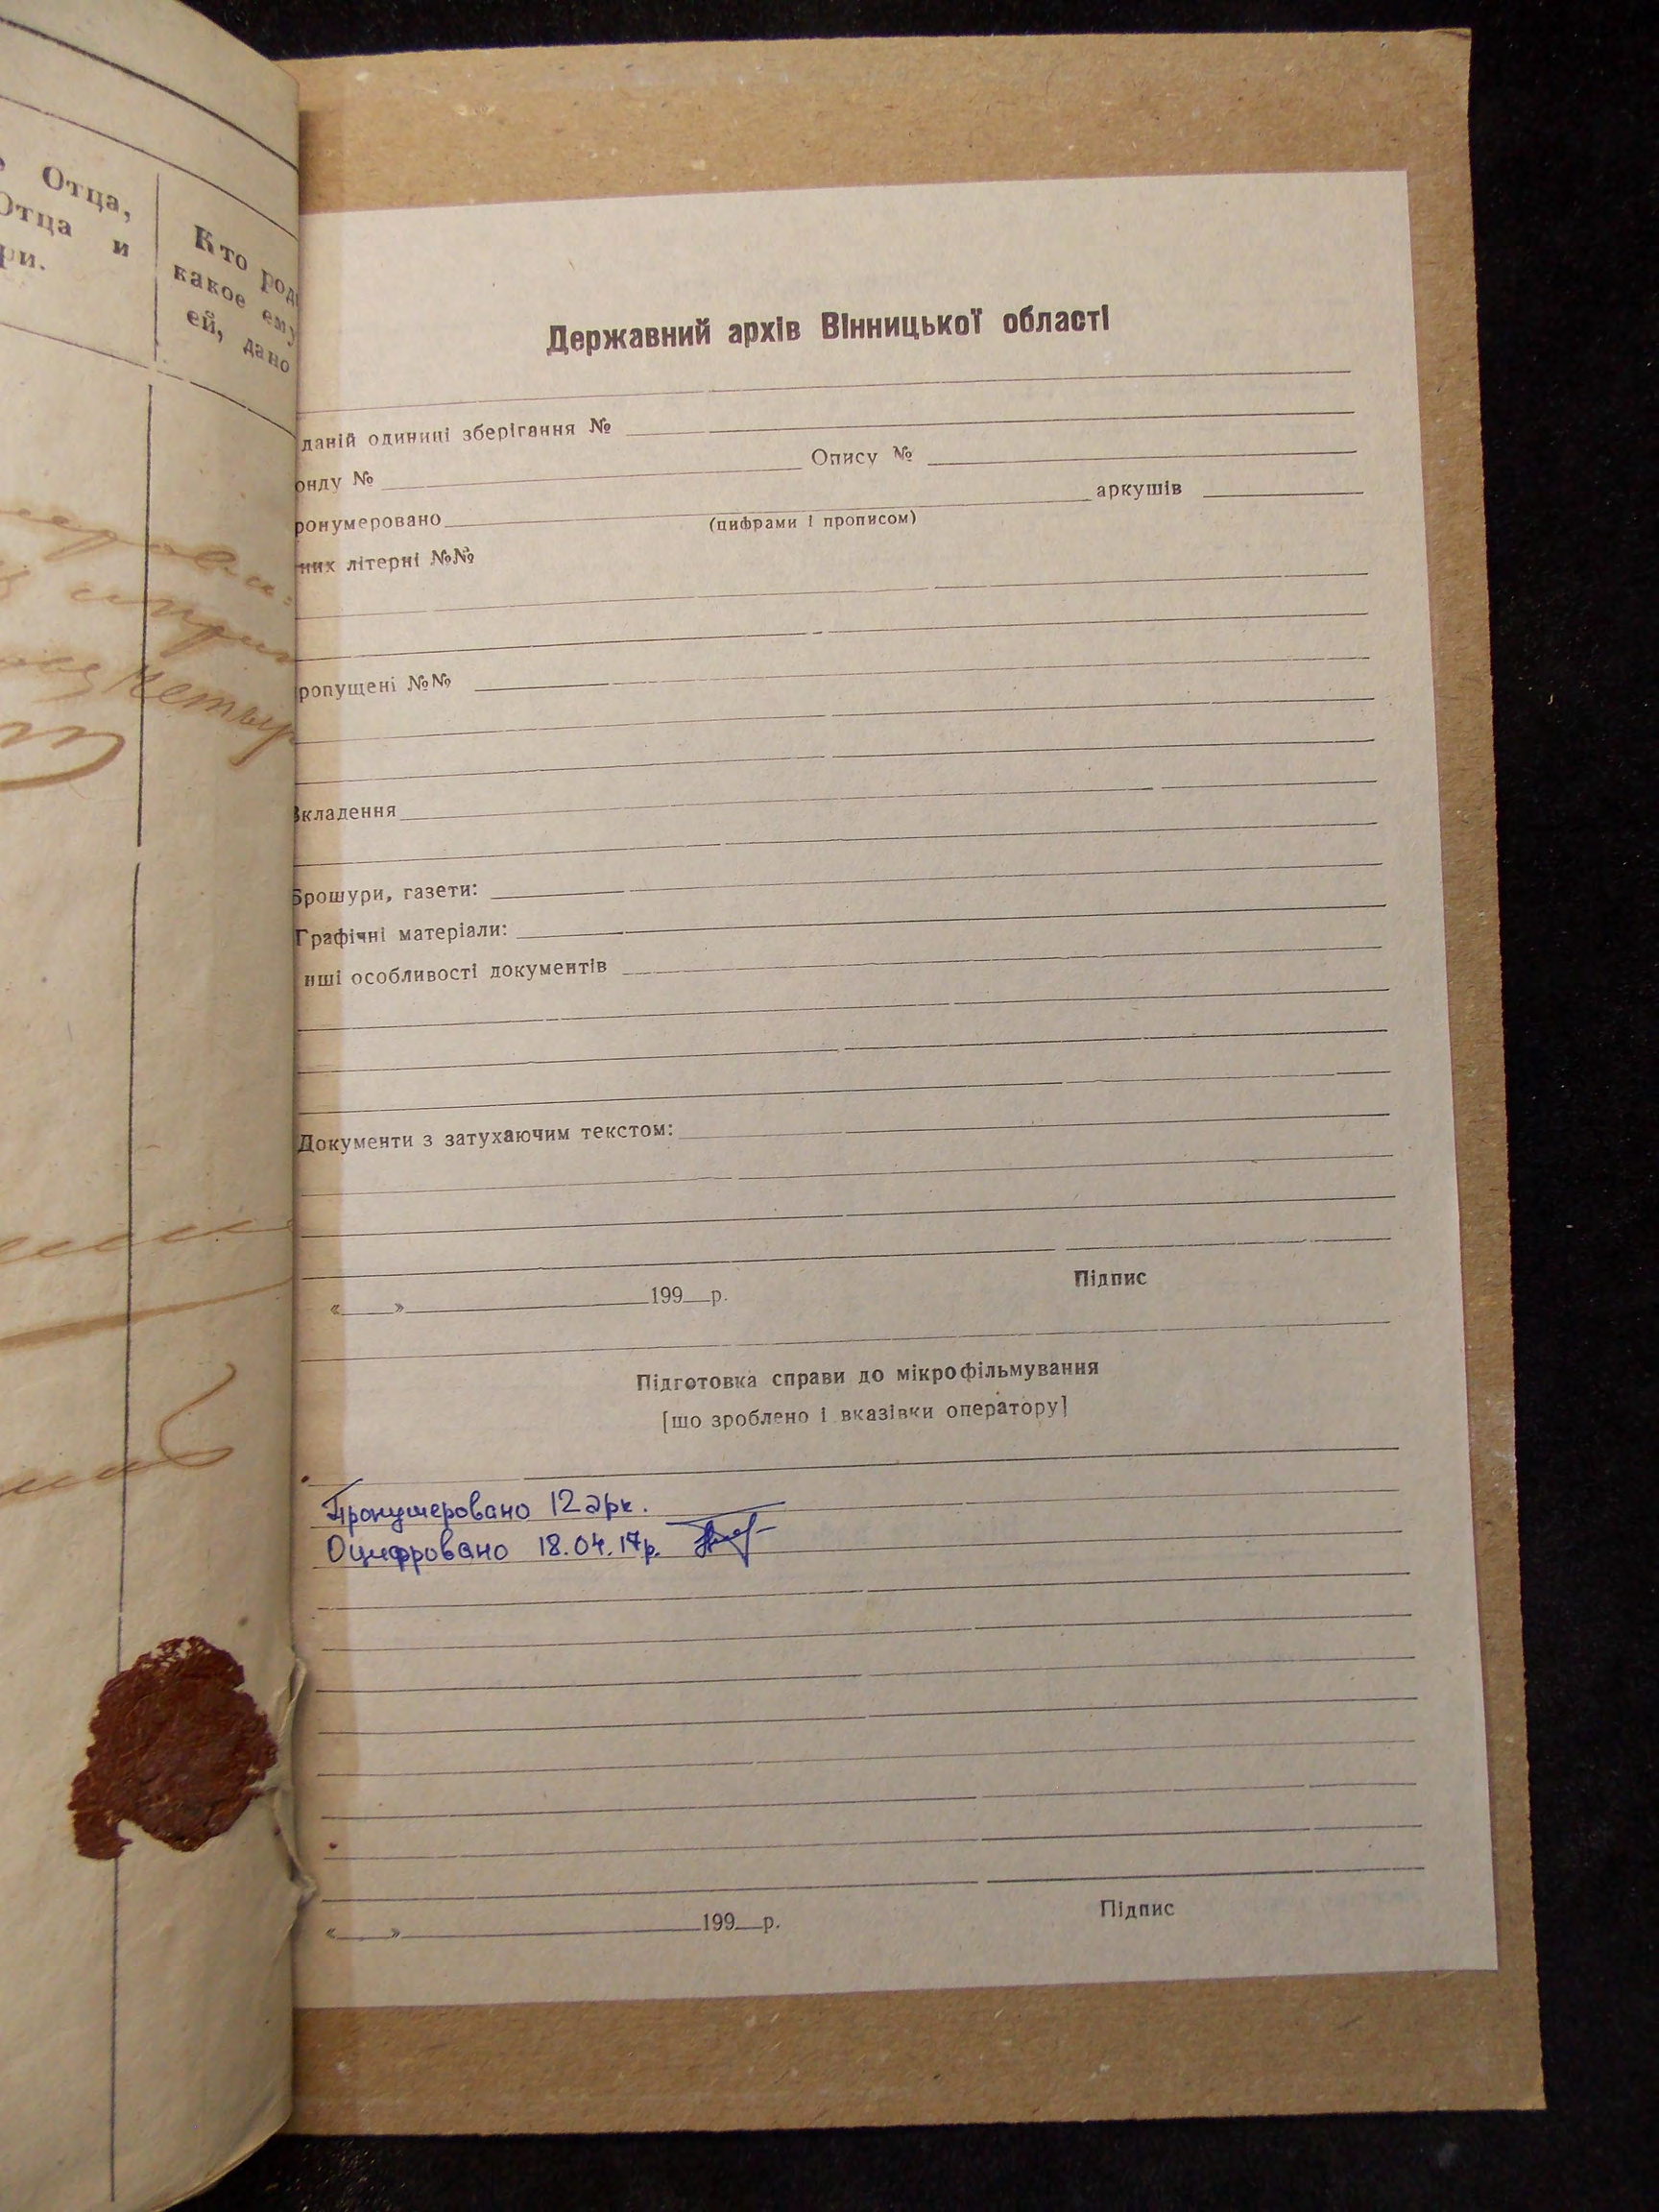 Отца,
Отца и
ри.
Кто род
какое ему
ей, дано
Державний архів Вінницької області
даній одиниці зберігання №
онду № Опису №
ронумеровано аркушів
(цифрами і прописом)
них літерні №№
ропущені №№
Вкладення
Брошури, газети:
Графічні матеріали:
нші особливості документів
Документи з затухаючим текстом:
Підпис
« » 199 р.
Підготовка справи до мікрофільмування
[що зроблено і вказівки оператору]
Пронумеровано 12 арк.
Оцифровано 18.04.17р.
Підпис
« » 199 р.